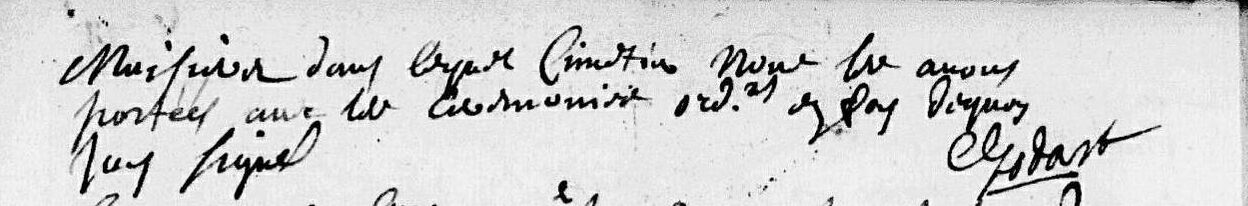 dans lequel Cimetiere Nous les avons
portées avec les Ceremonies ord.res en foy dequoy
Jay signé
Godart